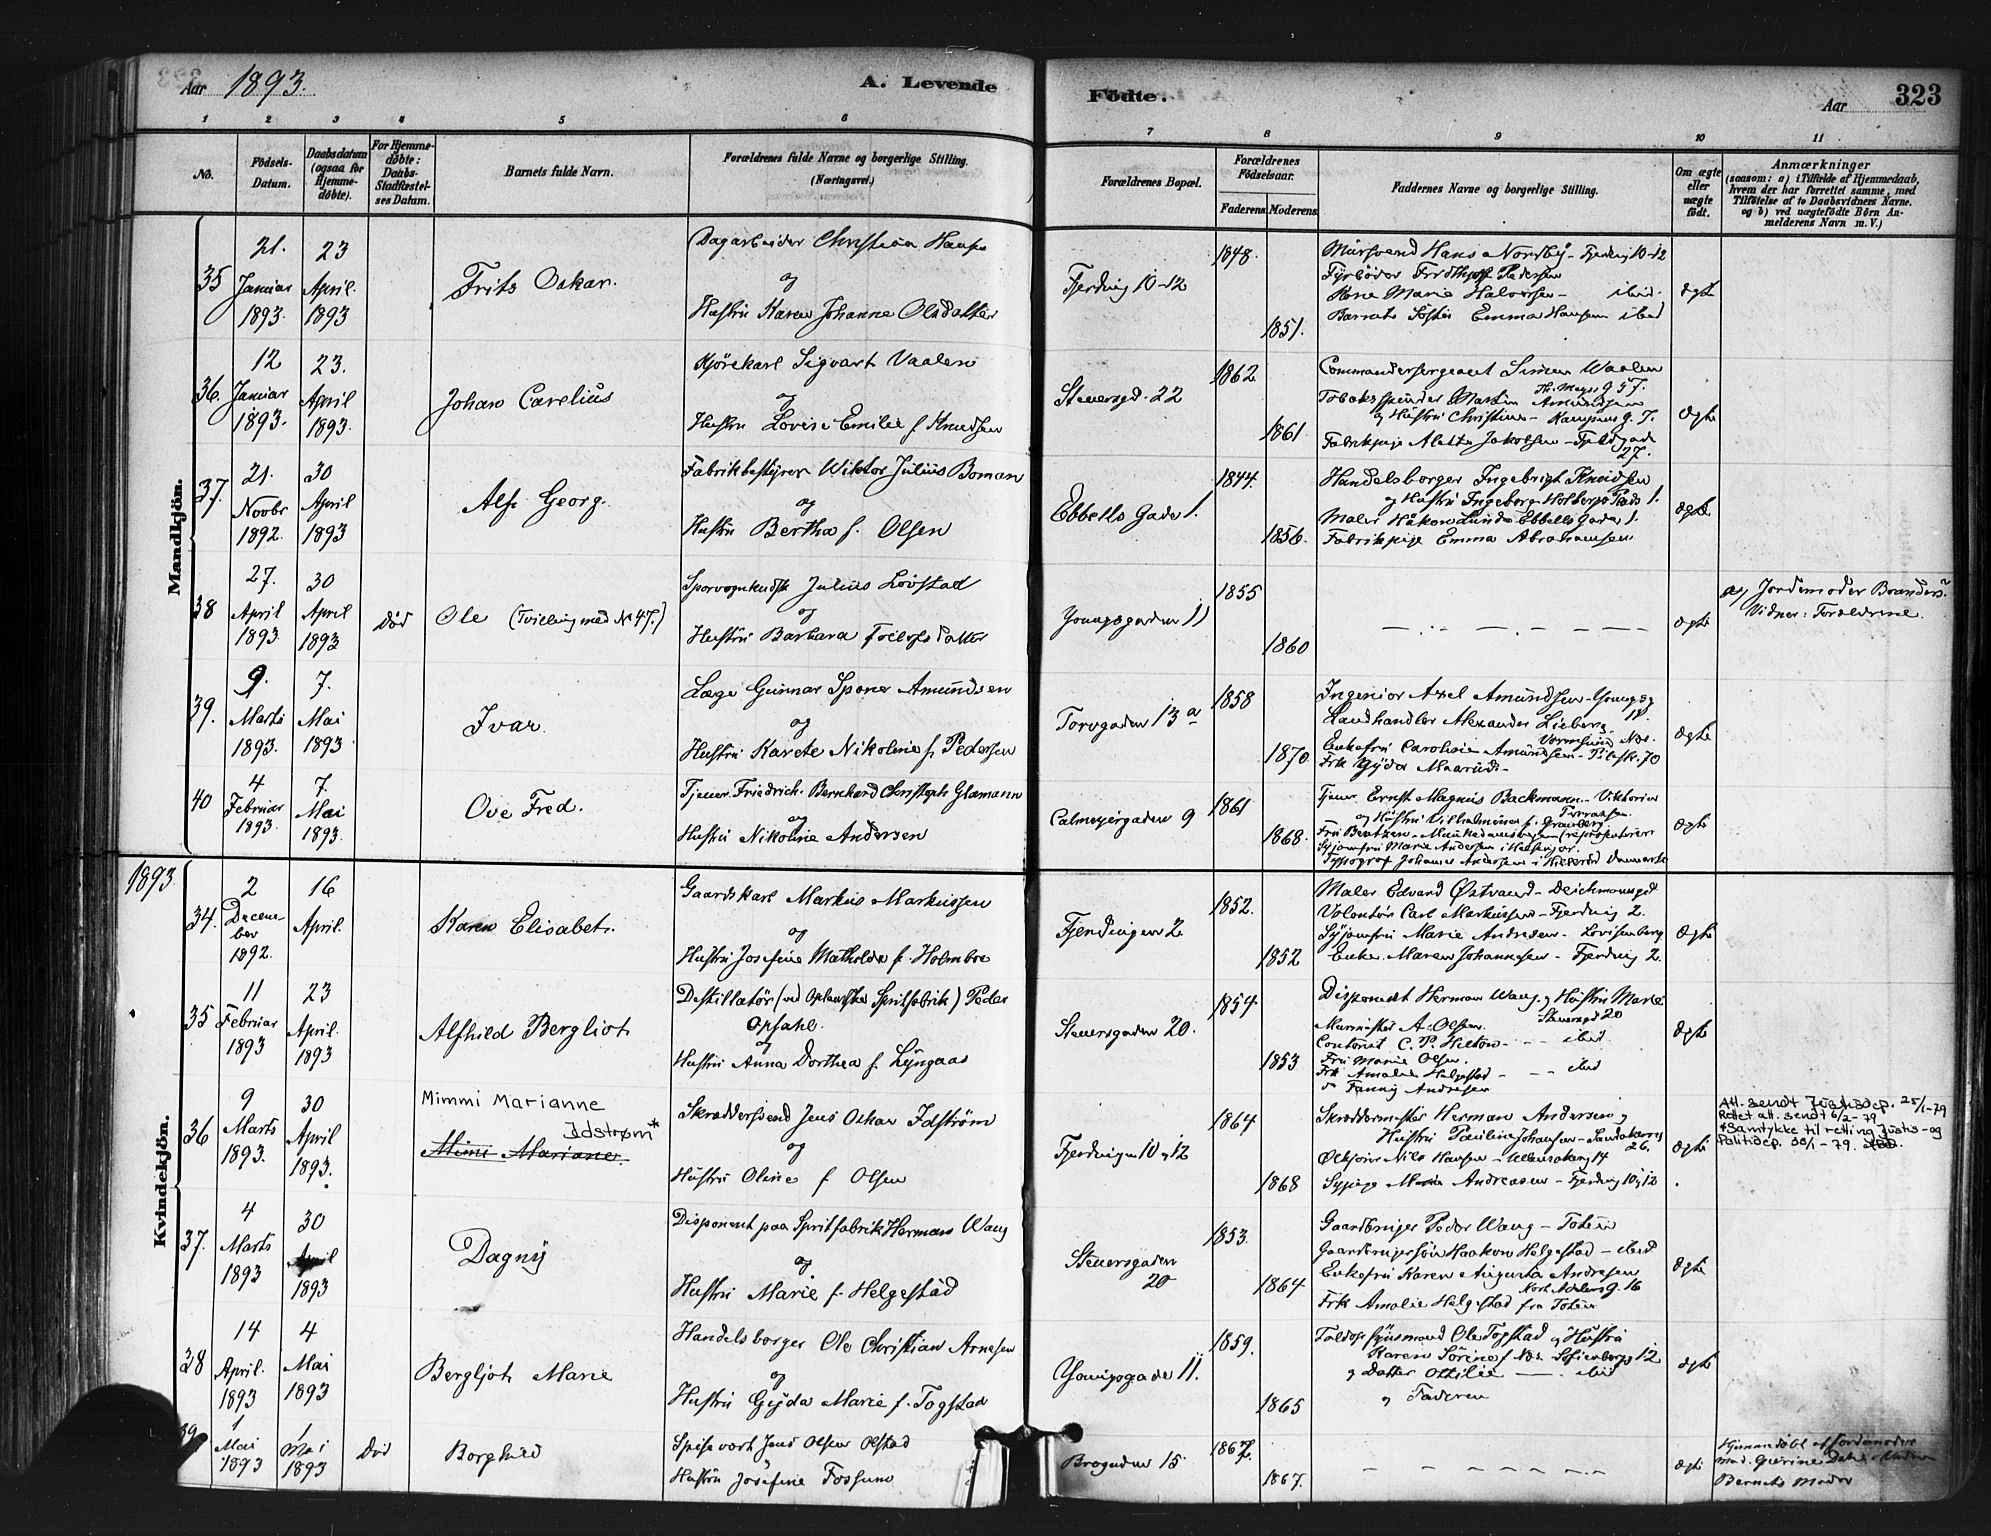 Aar 1893.
A. Levende
Födte.
Aar
323
1 2 3 4 5 6 7 8 9 10 11
No.
Födsels-Datum.
Daabsdatum (ogsaa for Hjemme-döbte).
For Hjemme-döbte: Daabs-Stadfæstel-ses Datum.
Barnets fulde Navn.
Forældrenes fulde Navne og borgerlige Stilling.
(Næringsvei.)
Forældrenes Bopæl.
Forældrenes Födselsaar.
Faderens. Moderens.
Faddernes Navne og borgerlige Stilling.
Om ægte eller uægte födt.
Anmærkninger
(saasom: a) i Tilfælde af Hjemmedaab, hvem der har forrettet samme, med Tilföielse af to Daabsvidners Navne. og b) ved uægtefödte Börn An-melderens Navn m. V.)
Mandkjön.
35 21. Januar 1893. 23 April 1893 Frits Oskar.
Dagarbeider Christian Hansen
og
Hustru Karen Johanne Olsdatter
Fjerding 10-12 1848. 1851.
Mursvend Hans Nordby - Fjerding 10-12
Fyrbøder Pedersen
Marie Halvorsen - ibid.
Barnets Søster Emma Hansen ibid
ægte
36. 12 Januar 1893. 23. April 1893. Johan Carelius
Kjørekarl Sigvart Vaalen
og
Hustru Lovise Emilie f. Knudsen
Steensgd. 22 1862. 1861
Commandersergeant Simen Waalen
Th. Meyers g 57.
Tobakspinder Martin Amundsen
og Hustru Christine - Hausmanns g. 7.
Fabrikpige Alette Jakobsen - Fjeldgade
27.
ægte
37. 21. Novbr 1892. 30 April 1893 Alf Georg.
Fabrikbestyrer Wiktor Julius Boman
og
Hustru Bertha f. Olsen
Ebbells Gade 1. 1844. 1856.
Handelsborger Ingebrigt Knudsen
og Hustru Ingeborg Holbergs Plads 1.
Maler Håkon Lund Ebbells Gade 1.
Fabrikpige Emma Abrahamsen
ægte
38 27. April 1893. 30 April 1893 Død Ole (Tvilling med No 47.)
Sporvognkudsk Julius Løvstad
og
Hustru Barbara datter
Youngsgaden 11 1855 1860
ægte
a) Jordemoder
Vidner: Forældrene.
39. 9. Marts 1893. 7. Mai 1893 Ivar.
Læge Gunnar Amundsen
og
Hustru Karete Nikoline f. Pedersen
Torvgaden 13 a 1858 1870
Ingeniør Axel Amundsen - Youngsg
11.
Landhandler Alexander Lieberg
Vormsund Nes.
Enkefru Caroline Amundsen - Pilestr. 70
Frk Gyda Maarud -
ægte
40 4 Februar 1893. 7. Mai 1893. Ove Fred.
Tjener Friedrich Bernhard Christoph Glamann
og
Hustru Nikoline Andersen
Calmeyergaden 9 1861 1868.
Tjener Ernst Magnus Backmann - Viktoria
og Hustru Vilhelmine f. Granberg
Fru Bentzen - Munkedamsveien
Syjomfru Marie Andersen i Helsingør.
Typograf Johannes Andersen i Danmark
ægte
1893.
Kvindekjön.
34. 2 December 1892. 16 April. Karen Elisabet.
Gaardskarl Markus Markussen
og
Hustru Josefine Mathilde f. Holmboe
Fjerdingen 2 1852. 1852
Maler Edvard Østrand - Deichmansgd
Volontør Carl Markussen - Fjerding 2.
Syjomfru Marie Andresen - Lovisenberg
Enke Maren Johannesen - Fjerding 2.
ægte
35 11 Februar 1893 23 April. 1893 Alfhild Bergliot
Destillatør (ved Oplandske Spritfabrik) Peder
Opsahl.
og
Hustru Anna Dorthea f. Lyngaas
Steensgaden 20. 1854. 1853
Disponent Herman Wang og Hustru Marie
Steensgd 20
A. Olsen.
Contorist C. P. - - ibid.
Fru Marie Olsen.
Frk Amalie Helgestad - - - ibid
" Fanny Andresen
ægte
36 9 Marts 1893. 30 April 1893. Mimmi Marianne
Idstrøm*
Mimi Mariane.
Skræddersvend Jens Oskar Idstrøm
og
Hustru Oline f Olsen
Fjerdingen 10 og 12 1864 1868
Skræddermester Herman Andersen og
Hustru Pauline Johansen - Sandakerveien
26.
Nils Hansen - Ullevaalsvei 14
Sypige Andreasen - Fjerding 10 og 12
ægte
Att. sendt Justisdep. 25/1-79
Rettet att. sendt 6/2-79
*Samtykke til retting Justis- og
Politidep.
37. 4 Marts 1893 30 April 1893 Dagny
Disponent paa Spritfabrik Herman Wang
og
Hustru Marie f. Helgestad
Steensgaden
20 1853. 1864
Gaardbruger Peder Wang - Toten
Gaardbrugersøn Haakon Helgestad - ibid
Enkefru Karen Augusta Andresen
Kort Adelers g. 16
Frk Amalie Helgestad fra Toten
ægte
38 14 April. 1893 4 Mai 1893 Bergljot Marie
Handelsborger Ole Christian Arnesen
og
Hustru Gyda Marie f. Togstad
Youngsgade 11. 1859. 1865
Ole Togstad og Hustru
Karen Sørine f Sofienbergg 12
og Datter Ottilie - ibid
og Faderen
ægte
39 1 Mai 1893 1 Mai 1893 Død Borghild
Spisevert Jens Olsen Olstad
Hustru Josefine Fossum
Brogaden 15 1867.
ægte
Hjemmedøbt af Jordemoder
Barnets Moder